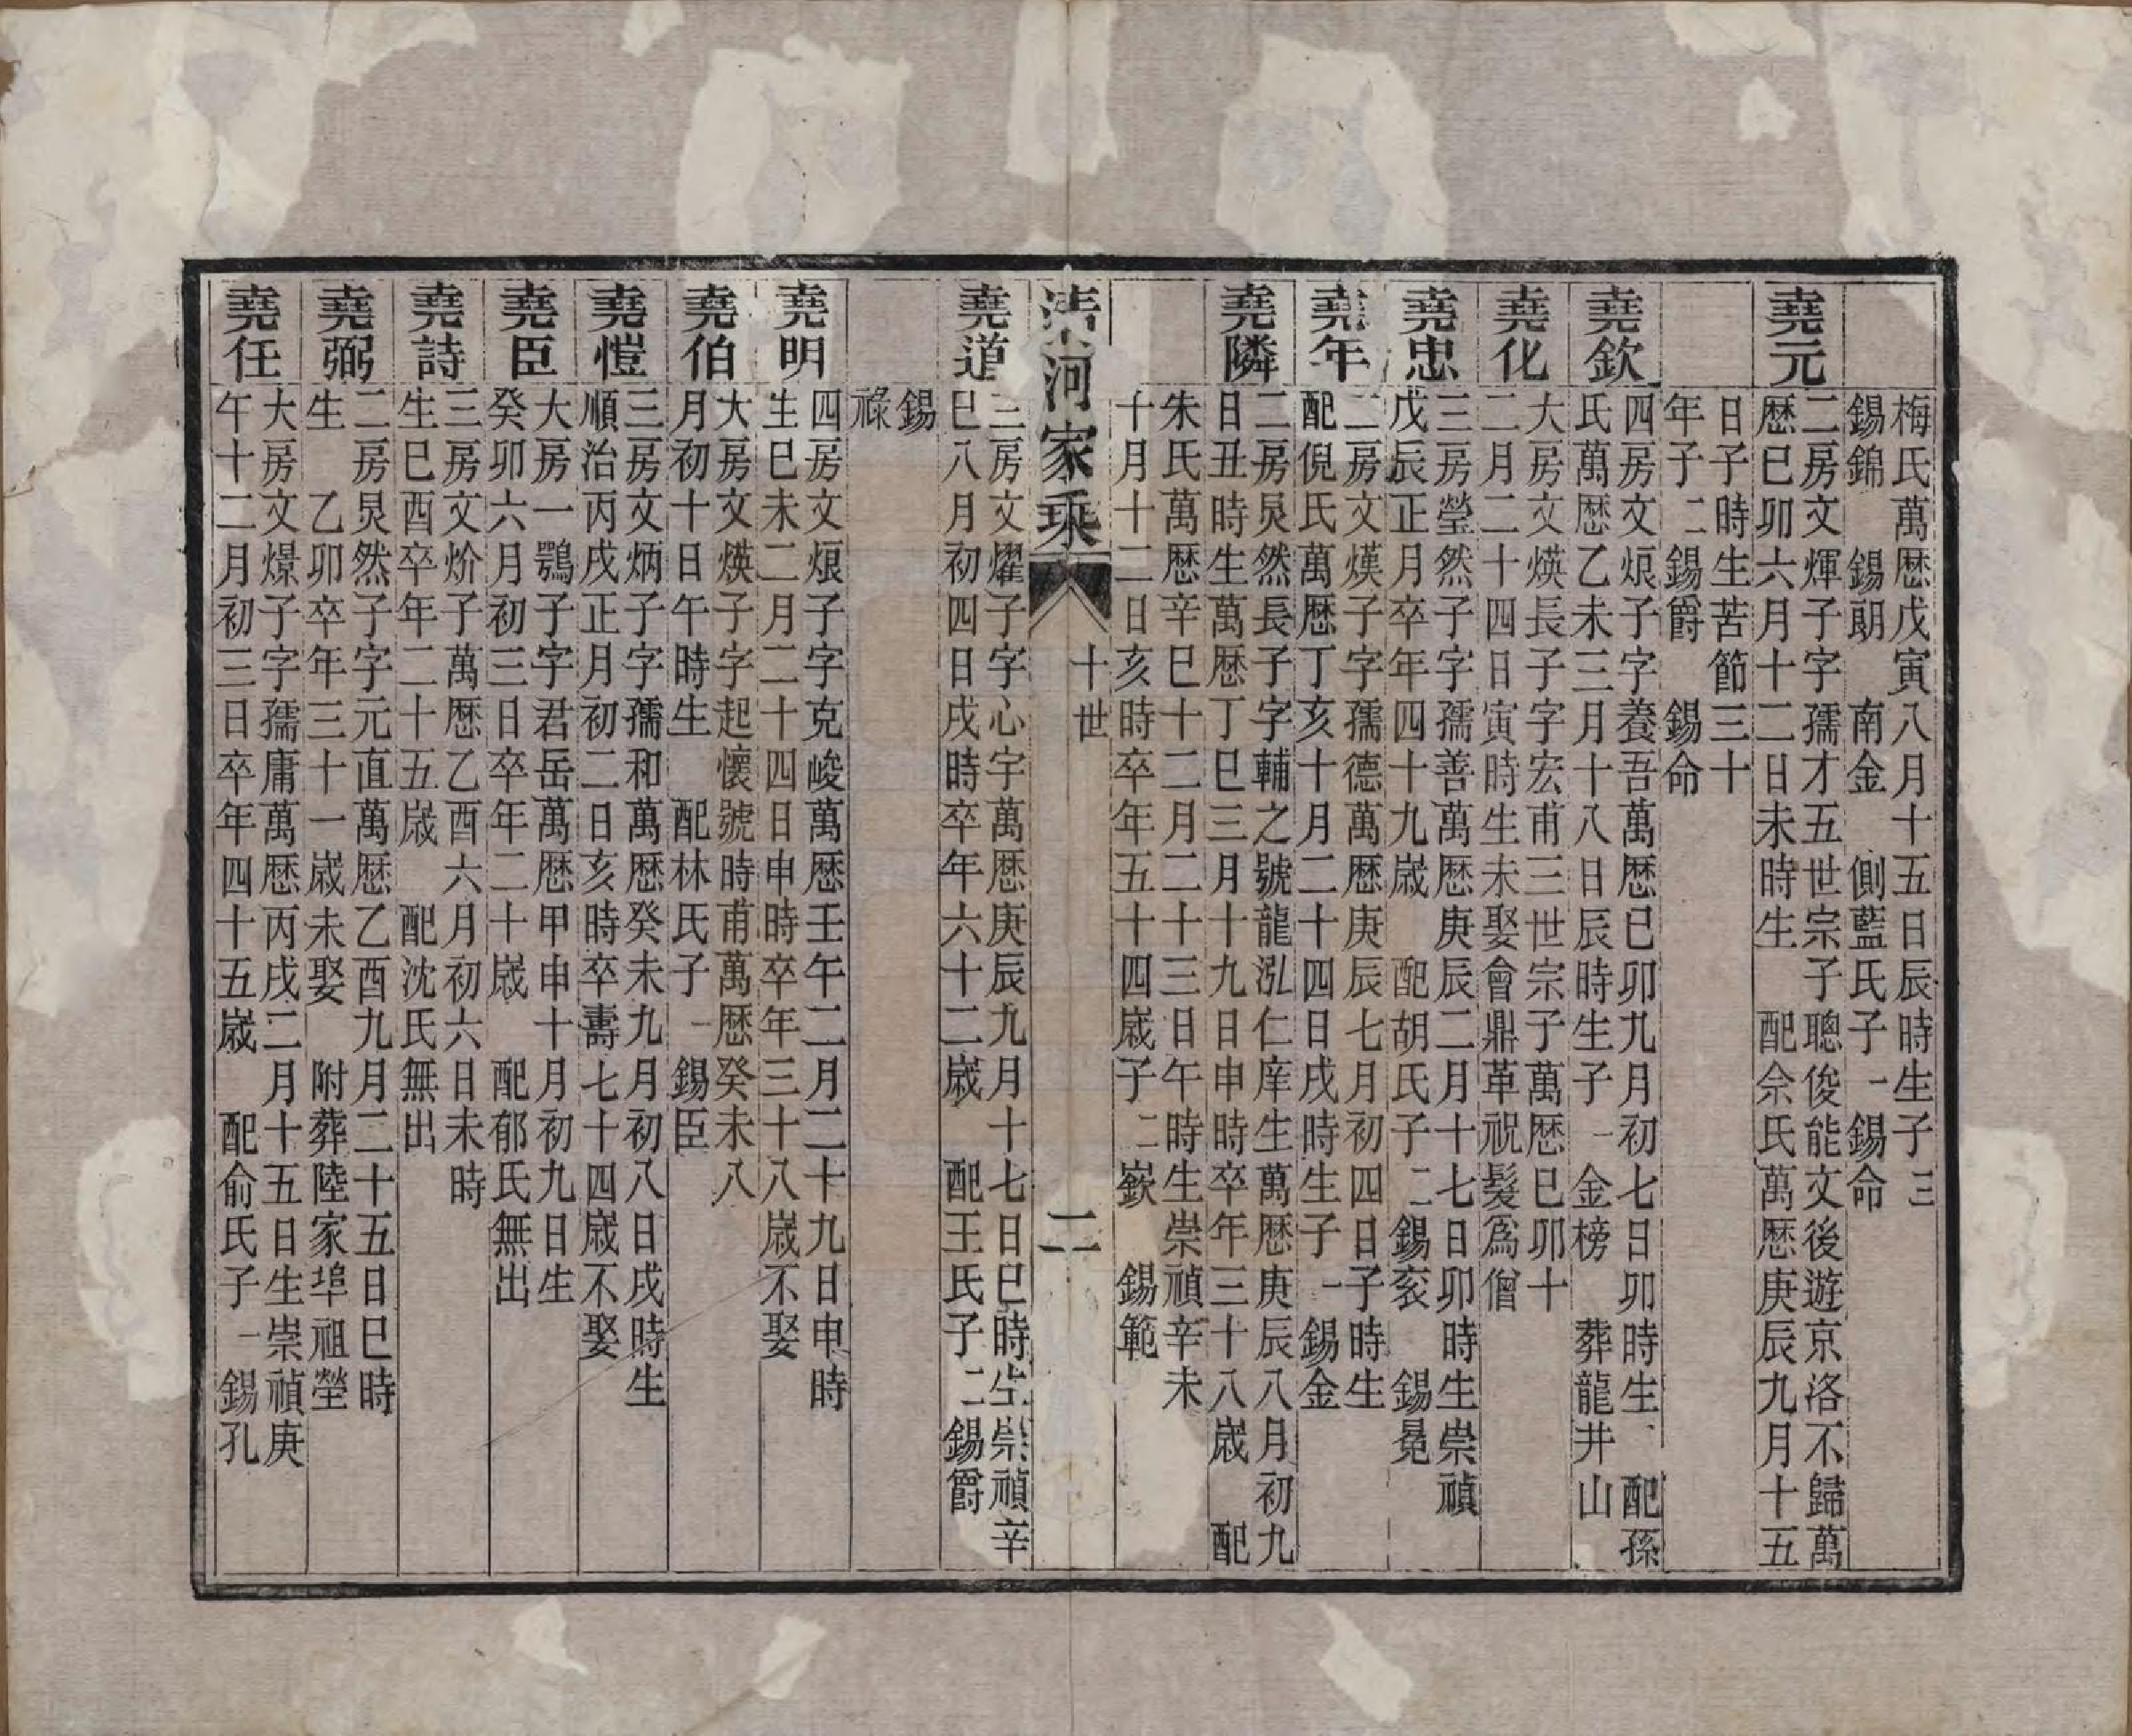 梅氏萬歷戊寅八月十五日辰時生子三
錫錦　錫朗　南金　側藍氏子一錫命
堯元
二房文煇子字孺才五世宗子聰俊能文後遊京洛不歸萬
歷巳卯六月十二日未時生　配余氏萬歷庚辰九月十五
日子時生苦節三十
年子二錫爵　錫命
堯欽
四房文烺子字養吾萬歷巳卯九月初七日卯時生　配孫
氏萬歷乙未三月十八日辰時生子一金榜　葬龍井山
堯化
大房文煐長子字宏甫三世宗子萬歷巳卯十
二月二十四日寅時生未娶會鼎革祝髮爲僧
堯忠
三房瑩然子字孺善萬歷庚辰二月十七日卯時生崇禎
戊辰正月卒年四十九歲　配胡氏子二錫衮　錫冕
堯年
二房文熯子字孺德萬歷庚辰七月初四日子時生
配倪氏萬歷丁亥十月二十四日戌時生子一錫金
堯隣
二房炅然長子字輔之號龍泓仁庠生萬歷庚辰八月初九
日丑時生萬歷丁巳三月十九日申時卒年三十八歲　配
朱氏萬歷辛巳十二月二十三日午時生崇禎辛未
十月十二日亥時卒年五十四歲子二嶔　錫範
清河家乘　十世　二
堯道
三房文燿子字心宇萬歷庚辰九月十七日巳時生崇禎辛
巳八月初四日戌時卒年六十二歲　配王氏子二錫爵
錫
祿
堯明
四房文烺子字克峻萬歷壬午二月二十九日申時
生巳未二月二十四日申時卒年三十八歲不娶
堯伯
大房文煐子字起懷號時甫萬歷癸未八
月初十日午時生　配林氏子一錫臣
堯愷
三房文炳子字孺和萬歷癸未九月初八日戌時生
順治丙戌正月初二日亥時卒壽七十四歲不娶
堯臣
大房一鶚子字君岳萬歷甲申十月初九日生
癸卯六月初三日卒年二十歲　配郁氏無出
堯詩
三房文炌子萬歷乙酉六月初六日未時
生巳酉卒年二十五歲　配沈氏無出
堯弼
二房炅然子字元直萬歷乙酉九月二十五日巳時
生　乙卯卒年三十一歲未娶　附葬陸家埠祖塋
堯任
大房文燝子字孺庸萬歷丙戌二月十五日生崇禎庚
午十二月初三日卒年四十五歲　配俞氏子一錫孔